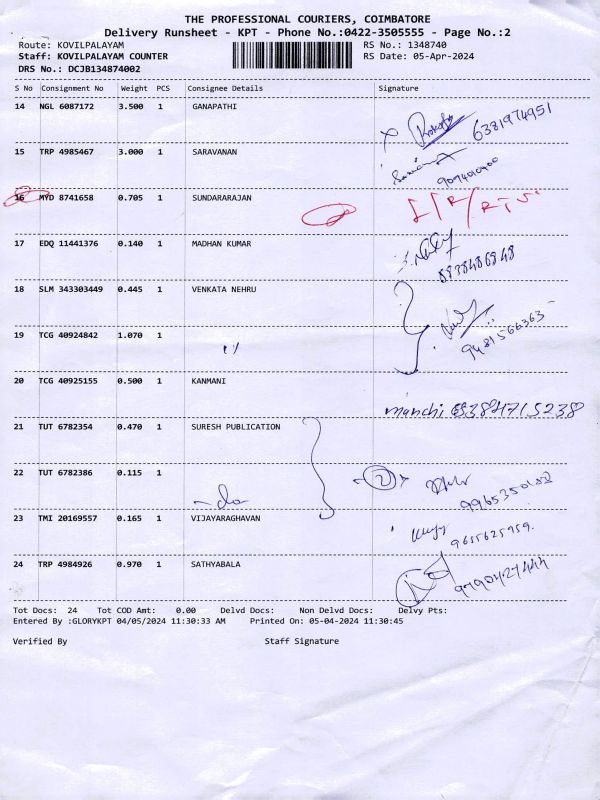 THE PROFESSIONAL COURIERS, COIMBATORE
Delivery Runsheet - KPT - Phone No.:0422-3505555 - Page No.:2
Route: KOVILPALAYAM RS No.: 1348740
Staff: KOVILPALAYAM COUNTER RS Date: 05-Apr-2024
DRS No.: DCJB134874002
S No Consignment No Weight PCS Consignee Details Signature
14 NGL 6087172 3.500 1 GANAPATHI
6381974951
15 TRP 4985467 3.000 1 SARAVANAN
16 MYD 8741658 0.705 1 SUNDARARAJAN
17 EDQ 11441376 0.140 1 MADHAN KUMAR
18 SLM 343303449 0.445 1 VENKATA NEHRU
19 TCG 40924842 1.070 1
9481566363
20 TCG 40925155 0.500 1 KANMANI
21 TUT 6782354 0.470 1 SURESH PUBLICATION
22 TUT 6782386 0.115 1
do 2
23 TMI 20169557 0.165 1 VIJAYARAGHAVAN
9655625959.
24 TRP 4984926 0.970 1 SATHYABALA
Tot Docs: 24 Tot COD Amt: 0.00 Delvd Docs: Non Delvd Docs: Delvy Pts:
Entered By :GLORYKPT 04/05/2024 11:30:33 AM Printed On: 05-04-2024 11:30:45
Verified By Staff Signature